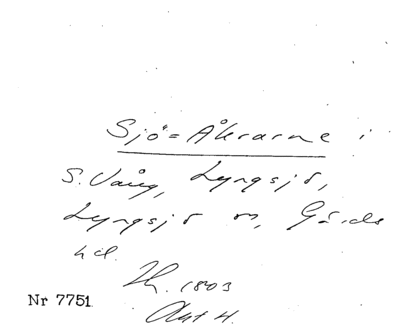 Sjö=Åkrarne i
S. Vång, Lyngsjö,
Lyngsjö sn, Gärds
hd.
Th. 1803
Akt 4.
Nr 7751